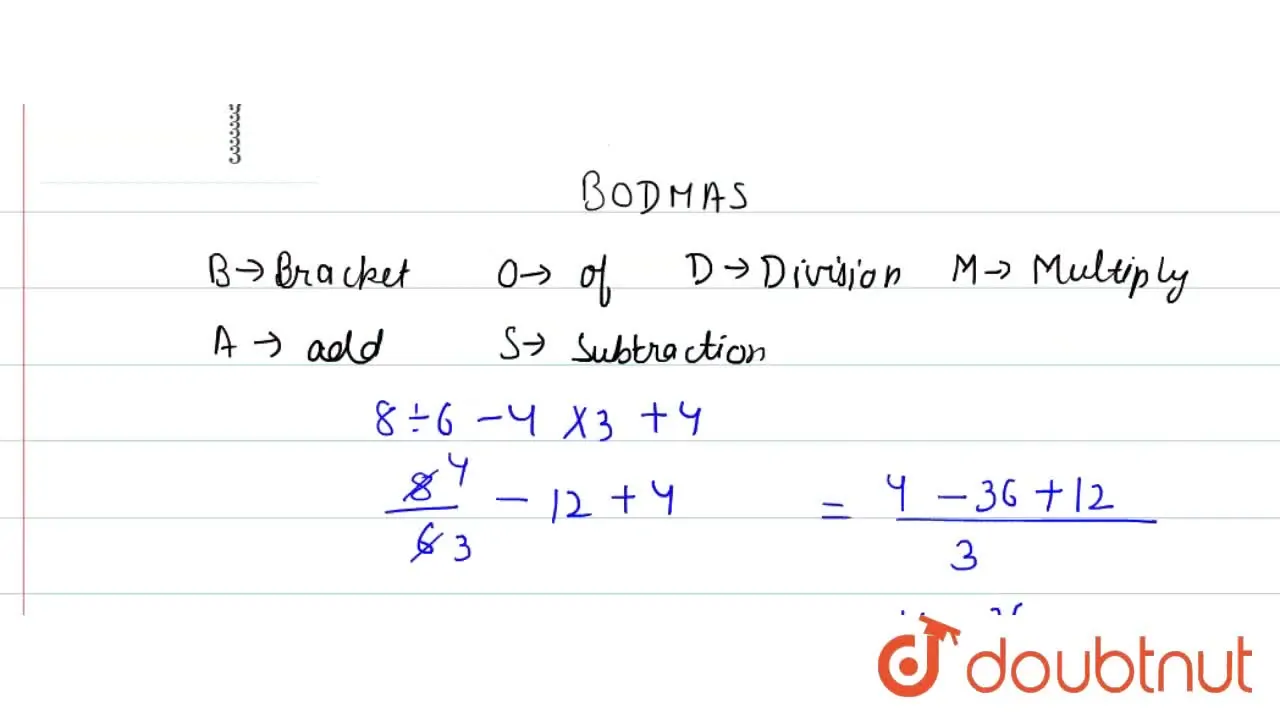 BODMAS
B→Bracket O→ of D→Division M→ Multiply
A → add S→ Subtraction
8÷6 -4 ×3 +4
8 4 / 6 3 - 12 + 4 = 4 - 36 + 12 / 3
doubtnut